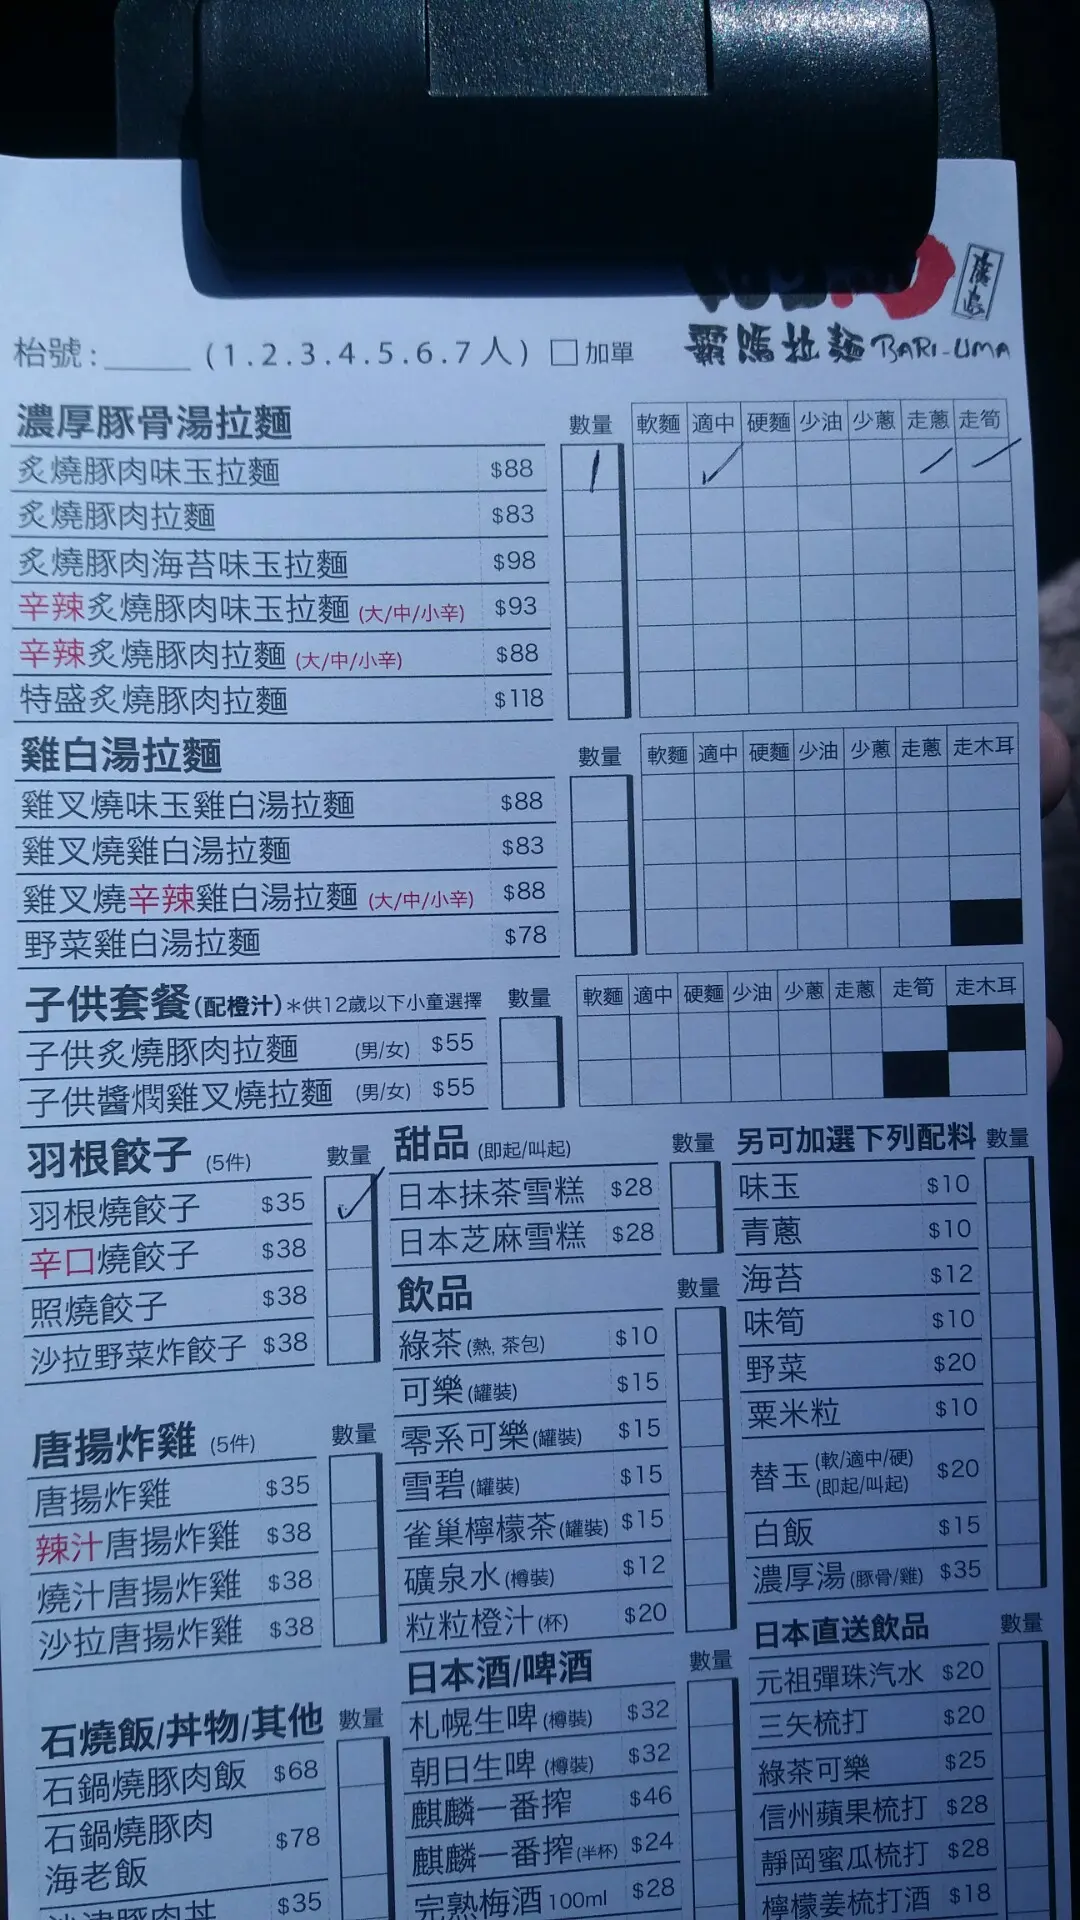 廣島
霸嗎拉麵 BARI-UMA
枱號:_____ (1.2.3.4.5.6.7人) □加單
濃厚豚骨湯拉麵 數量 軟麵 適中 硬麵 少油 少蔥 走蔥 走筍
炙燒豚肉味玉拉麵 $88 1 ✓ / /
炙燒豚肉拉麵 $83
炙燒豚肉海苔味玉拉麵 $98
辛辣炙燒豚肉味玉拉麵 (大/中/小辛) $93
辛辣炙燒豚肉拉麵 (大/中/小辛) $88
特盛炙燒豚肉拉麵 $118
雞白湯拉麵 數量 軟麵 適中 硬麵 少油 少蔥 走蔥 走木耳
雞叉燒味玉雞白湯拉麵 $88
雞叉燒雞白湯拉麵 $83
雞叉燒辛辣雞白湯拉麵 (大/中/小辛) $88
野菜雞白湯拉麵 $78
子供套餐(配橙汁)*供12歲以下小童選擇 數量 軟麵 適中 硬麵 少油 少蔥 走蔥 走筍 走木耳
子供炙燒豚肉拉麵 (男/女) $55
子供醬燜雞叉燒拉麵 (男/女) $55
羽根餃子 (5件) 數量
羽根燒餃子 $35 ✓
辛口燒餃子 $38
照燒餃子 $38
沙拉野菜炸餃子 $38
唐揚炸雞 (5件) 數量
唐揚炸雞 $35
辣汁唐揚炸雞 $38
燒汁唐揚炸雞 $38
沙拉唐揚炸雞 $38
石燒飯/丼物/其他 數量
石鍋燒豚肉飯 $68
石鍋燒豚肉
海老飯 $78
豚肉丼 $35
甜品 (即起/叫起) 數量
日本抹茶雪糕 $28
日本芝麻雪糕 $28
飲品 數量
綠茶(熱, 茶包) $10
可樂(罐裝) $15
零系可樂(罐裝) $15
雪碧(罐裝) $15
雀巢檸檬茶(罐裝) $15
礦泉水(樽裝) $12
粒粒橙汁(杯) $20
日本酒/啤酒 數量
札幌生啤(樽裝) $32
朝日生啤(樽裝) $32
麒麟一番搾 $46
麒麟一番搾(半杯) $24
完熟梅酒100ml $28
另可加選下列配料 數量
味玉 $10
青蔥 $10
海苔 $12
味筍 $10
野菜 $20
粟米粒 $10
替玉 (軟/適中/硬) (即起/叫起) $20
白飯 $15
濃厚湯(豚骨/雞) $35
日本直送飲品 數量
元祖彈珠汽水 $20
三矢梳打 $20
綠茶可樂 $25
信州蘋果梳打 $28
靜岡蜜瓜梳打 $28
檸檬姜梳打酒 $18